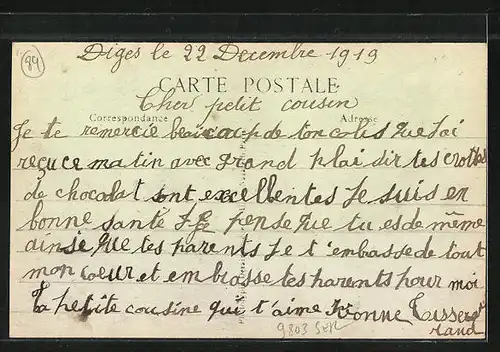 89
Diges le 22 Decembre 1919
CARTE POSTALE
Cher petit cousin
Correspondance Adresse
Je te remercie beaucoup de ton colis que J'ai
reçu ce matin avec grand plaisir tes crottes
de chocolat sont excellentes Je suis en
bonne santé Je pense que tu es de même
ainse que tes parents Je t'embasse de tout
mon cœur et embrasse tes parents pour moi
Ta petite cousine qui t'aime Yvonne
9803 SER